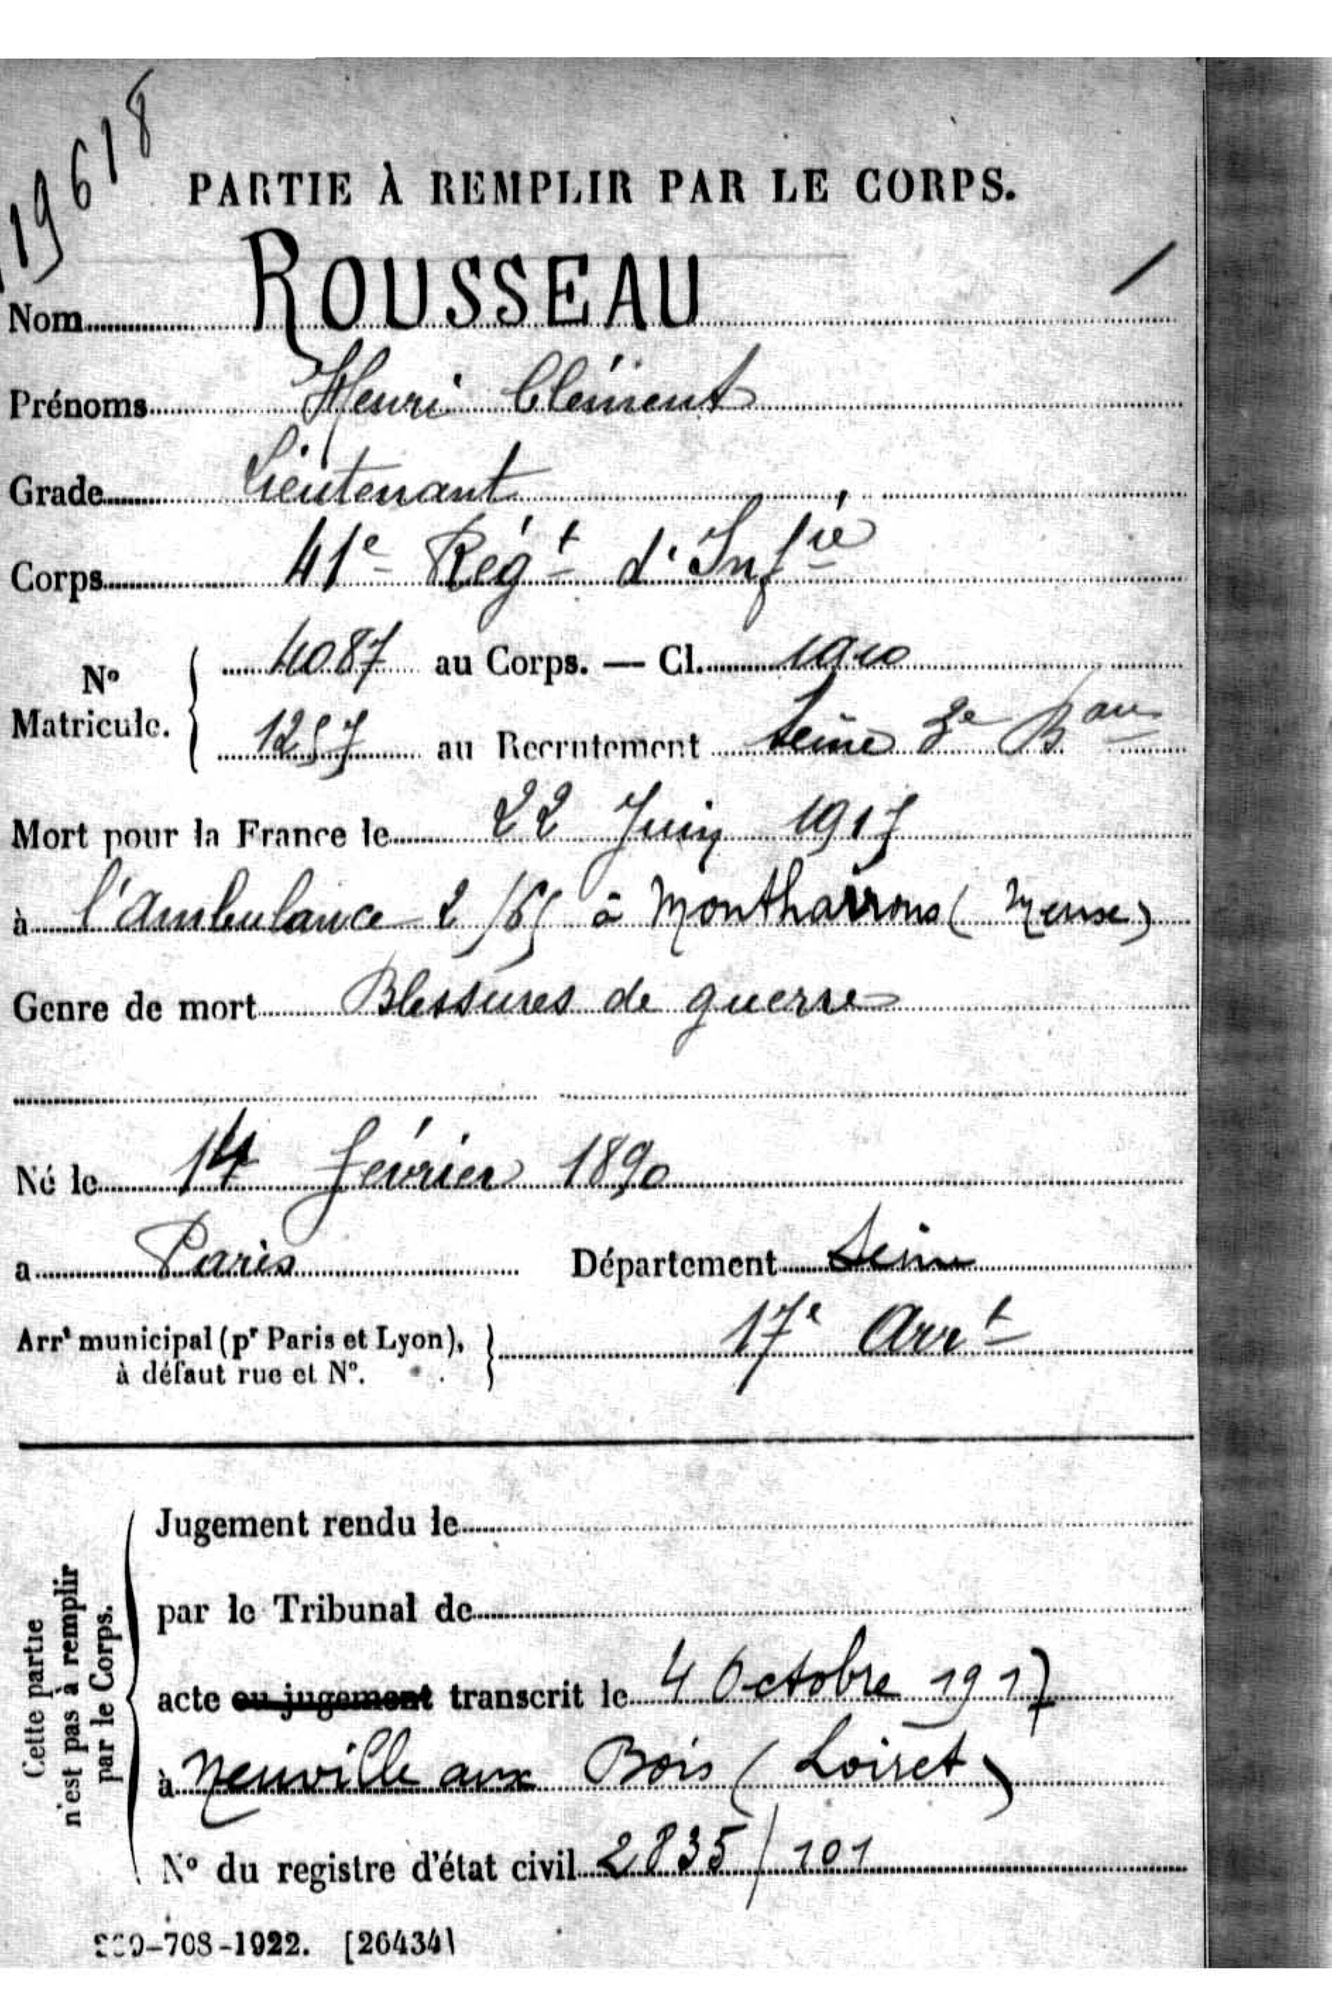 19618
PARTIE À REMPLIR PAR LE CORPS.
Nom ROUSSEAU
Prénoms Henri Clément
Grade Lieutenant
Corps 41e Régt d'Infie
No Matricule. { 4087 au Corps. — Cl. 1910
1257 au Recrutement Seine 3e Bau
Mort pour la France le 22 Juin 1917
à l'ambulance 2/65 à Monthairons (Meuse)
Genre de mort Blessures de guerre
Né le 14 février 1890
a Paris Département Seine
Arrt municipal (pr Paris et Lyon), à défaut rue et No. } 17e Arrt
Cette partie n'est pas à remplir par le Corps.
Jugement rendu le
par le Tribunal de
acte ou jugement transcrit le 4 Octobre 1917
à Neuville aux Bois (Loiret)
No du registre d'état civil 2835/101
-708-1922. [26434]